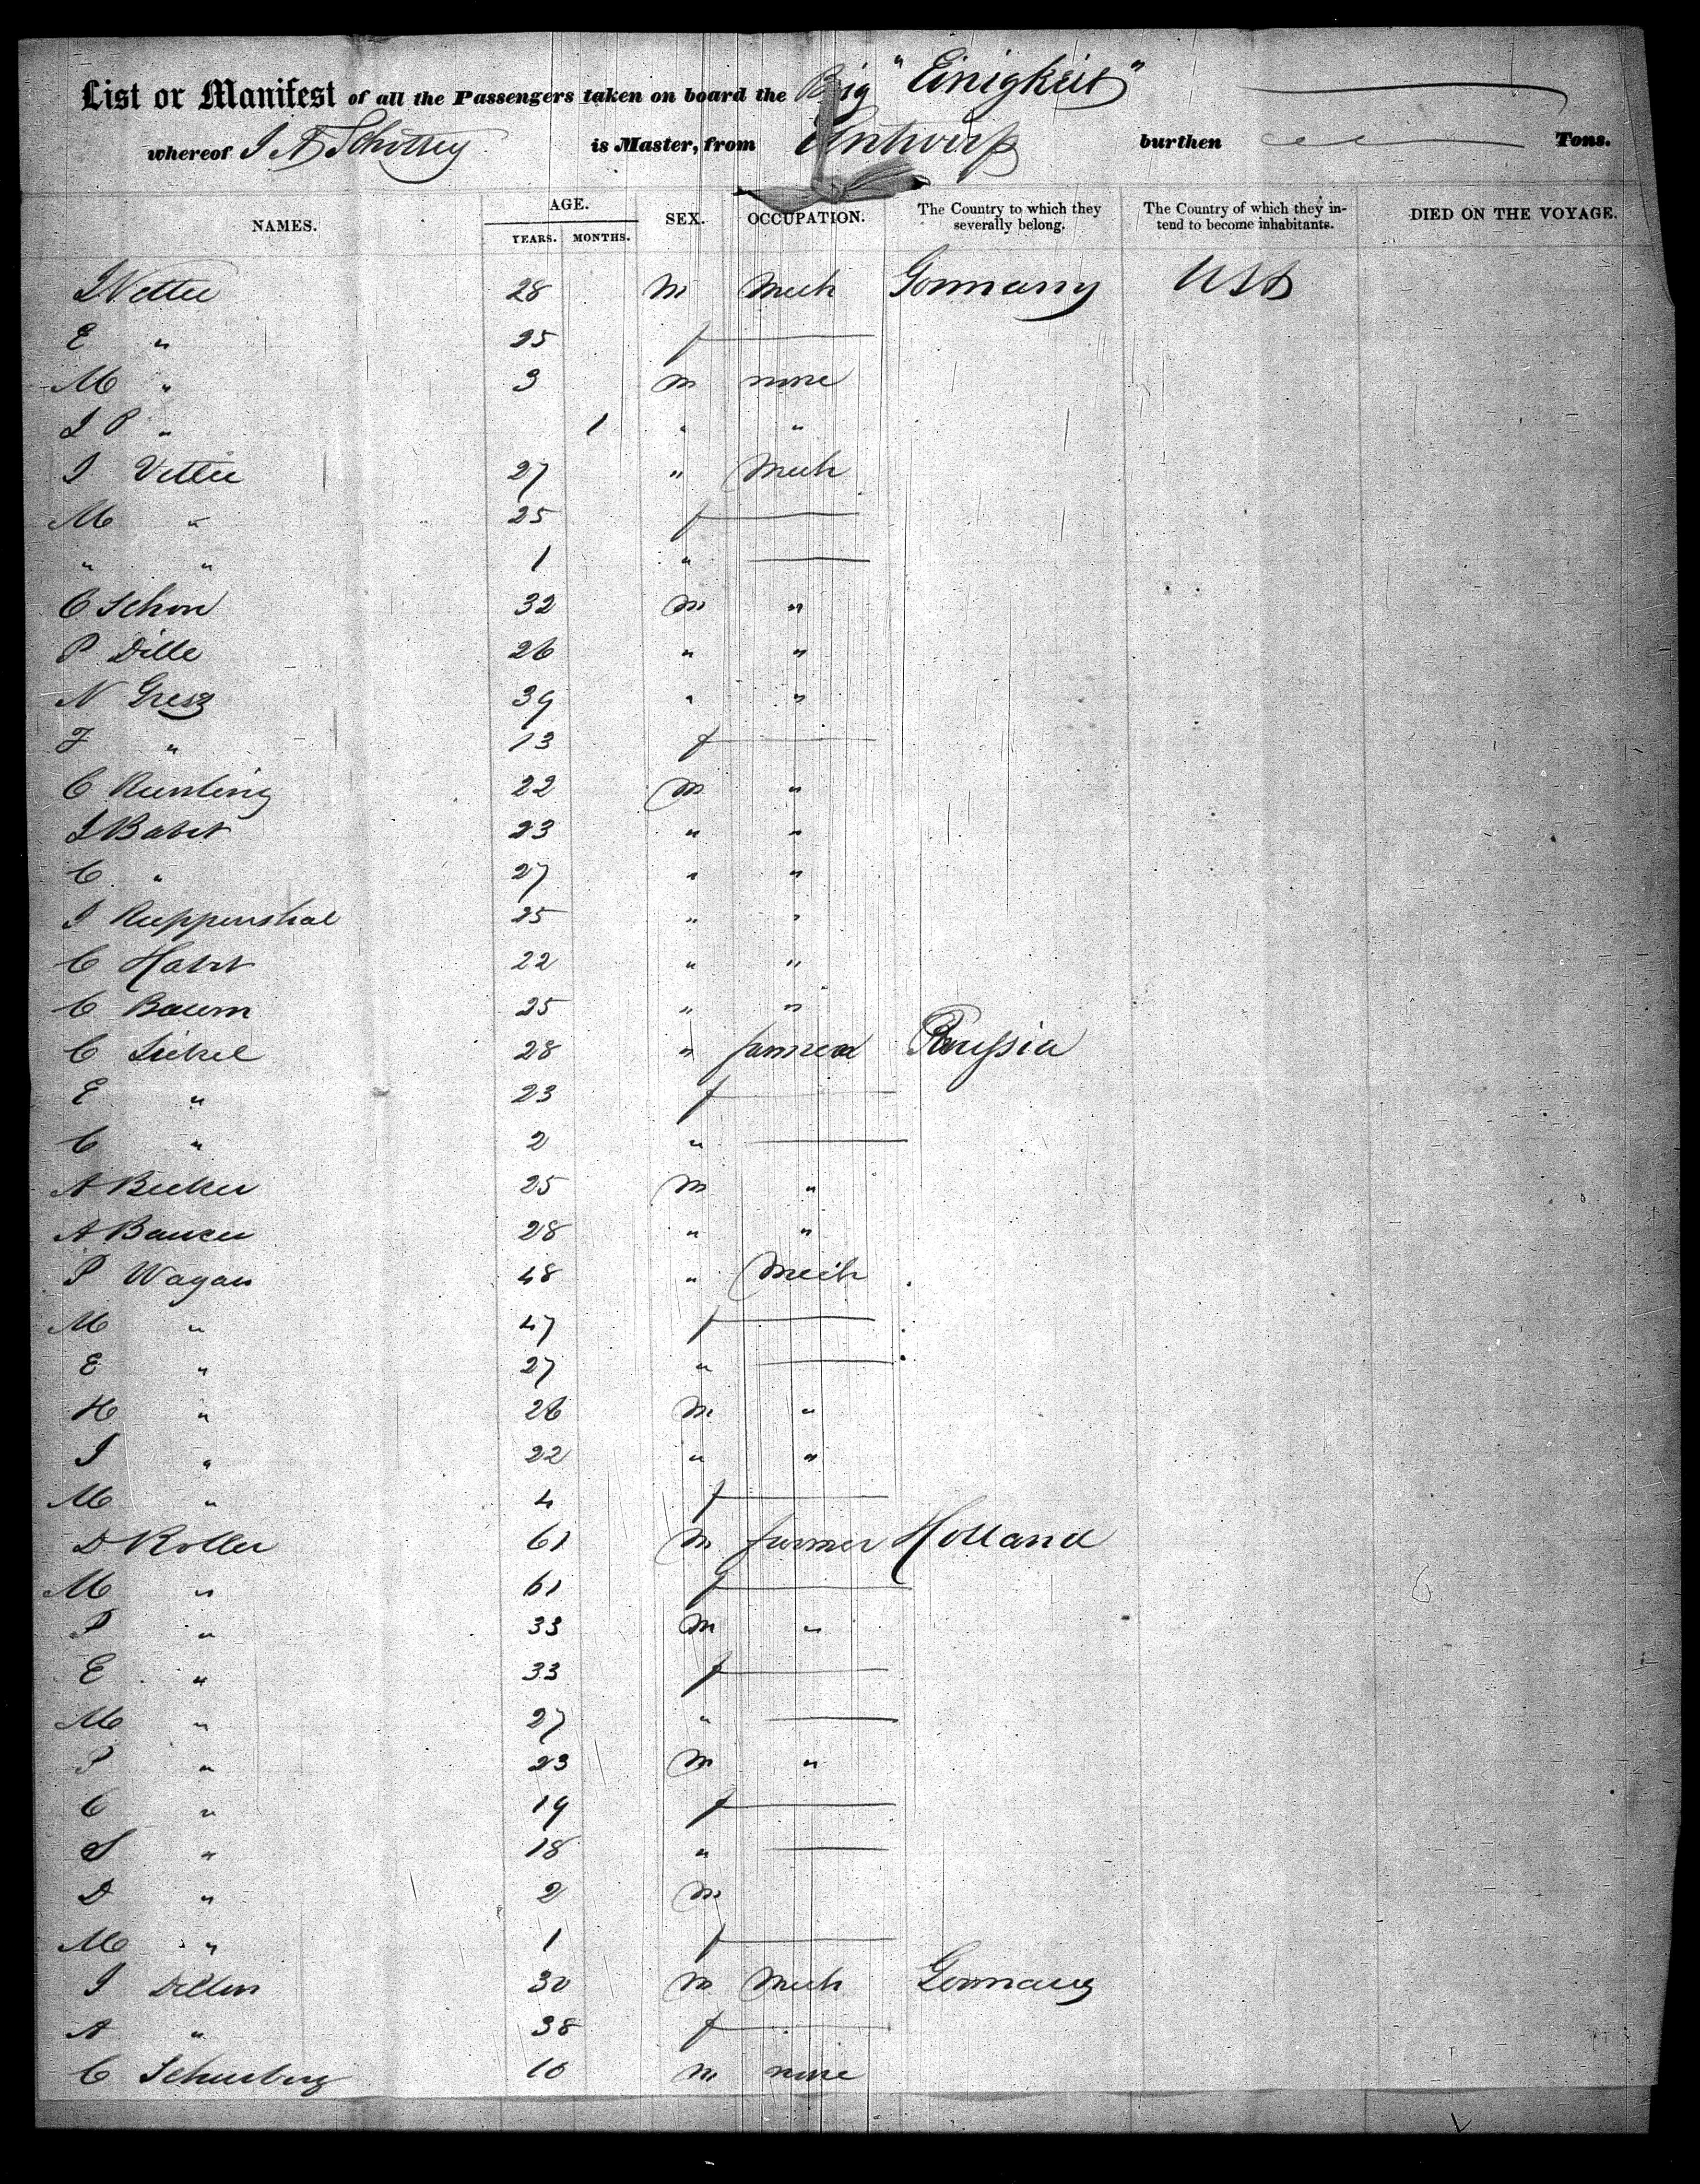 List or Manifest of all the Passengers taken on board the Brig "Einigkeit"
whereof J A is Master, from Antwerp burthen Tons.
NAMES. AGE. YEARS. MONTHS. SEX. OCCUPATION. The Country to which they severally belong. The Country of which they intend to become inhabitants. DIED ON THE VOYAGE.
J Vetter 28 m Mech Germany USA
E " 25 f
M " 3 m none
J P " 1 " "
J Vetter 27 " Mech
M " 25 f
" " 1 "
C Schon 32 m "
P Dille 26 " "
N Gresz 39 " "
F " 13 f
C 22 m "
J Babst 23 " "
C " 27 " "
J Ruppenshal 25 " "
C 22 " "
C Baum 25 " "
C Sickel 28 " farmer Prussia
E " 23 f
C " 2 "
A Becker 25 m "
A Bauer 28 " "
P Wagan 48 " Mech
M " 47 f
E " 27 "
H " 26 m "
J " 22 " "
M " 4 f
D Roller 61 m farmer Holland
M " 61 f
P " 33 m "
E " 33 f
M " 27 "
P " 23 m "
C " 19 f
S " 18 "
D " 2 m
M " 1 f
J Dillen 30 m Mech Germany
A " 38 f
C 10 m none